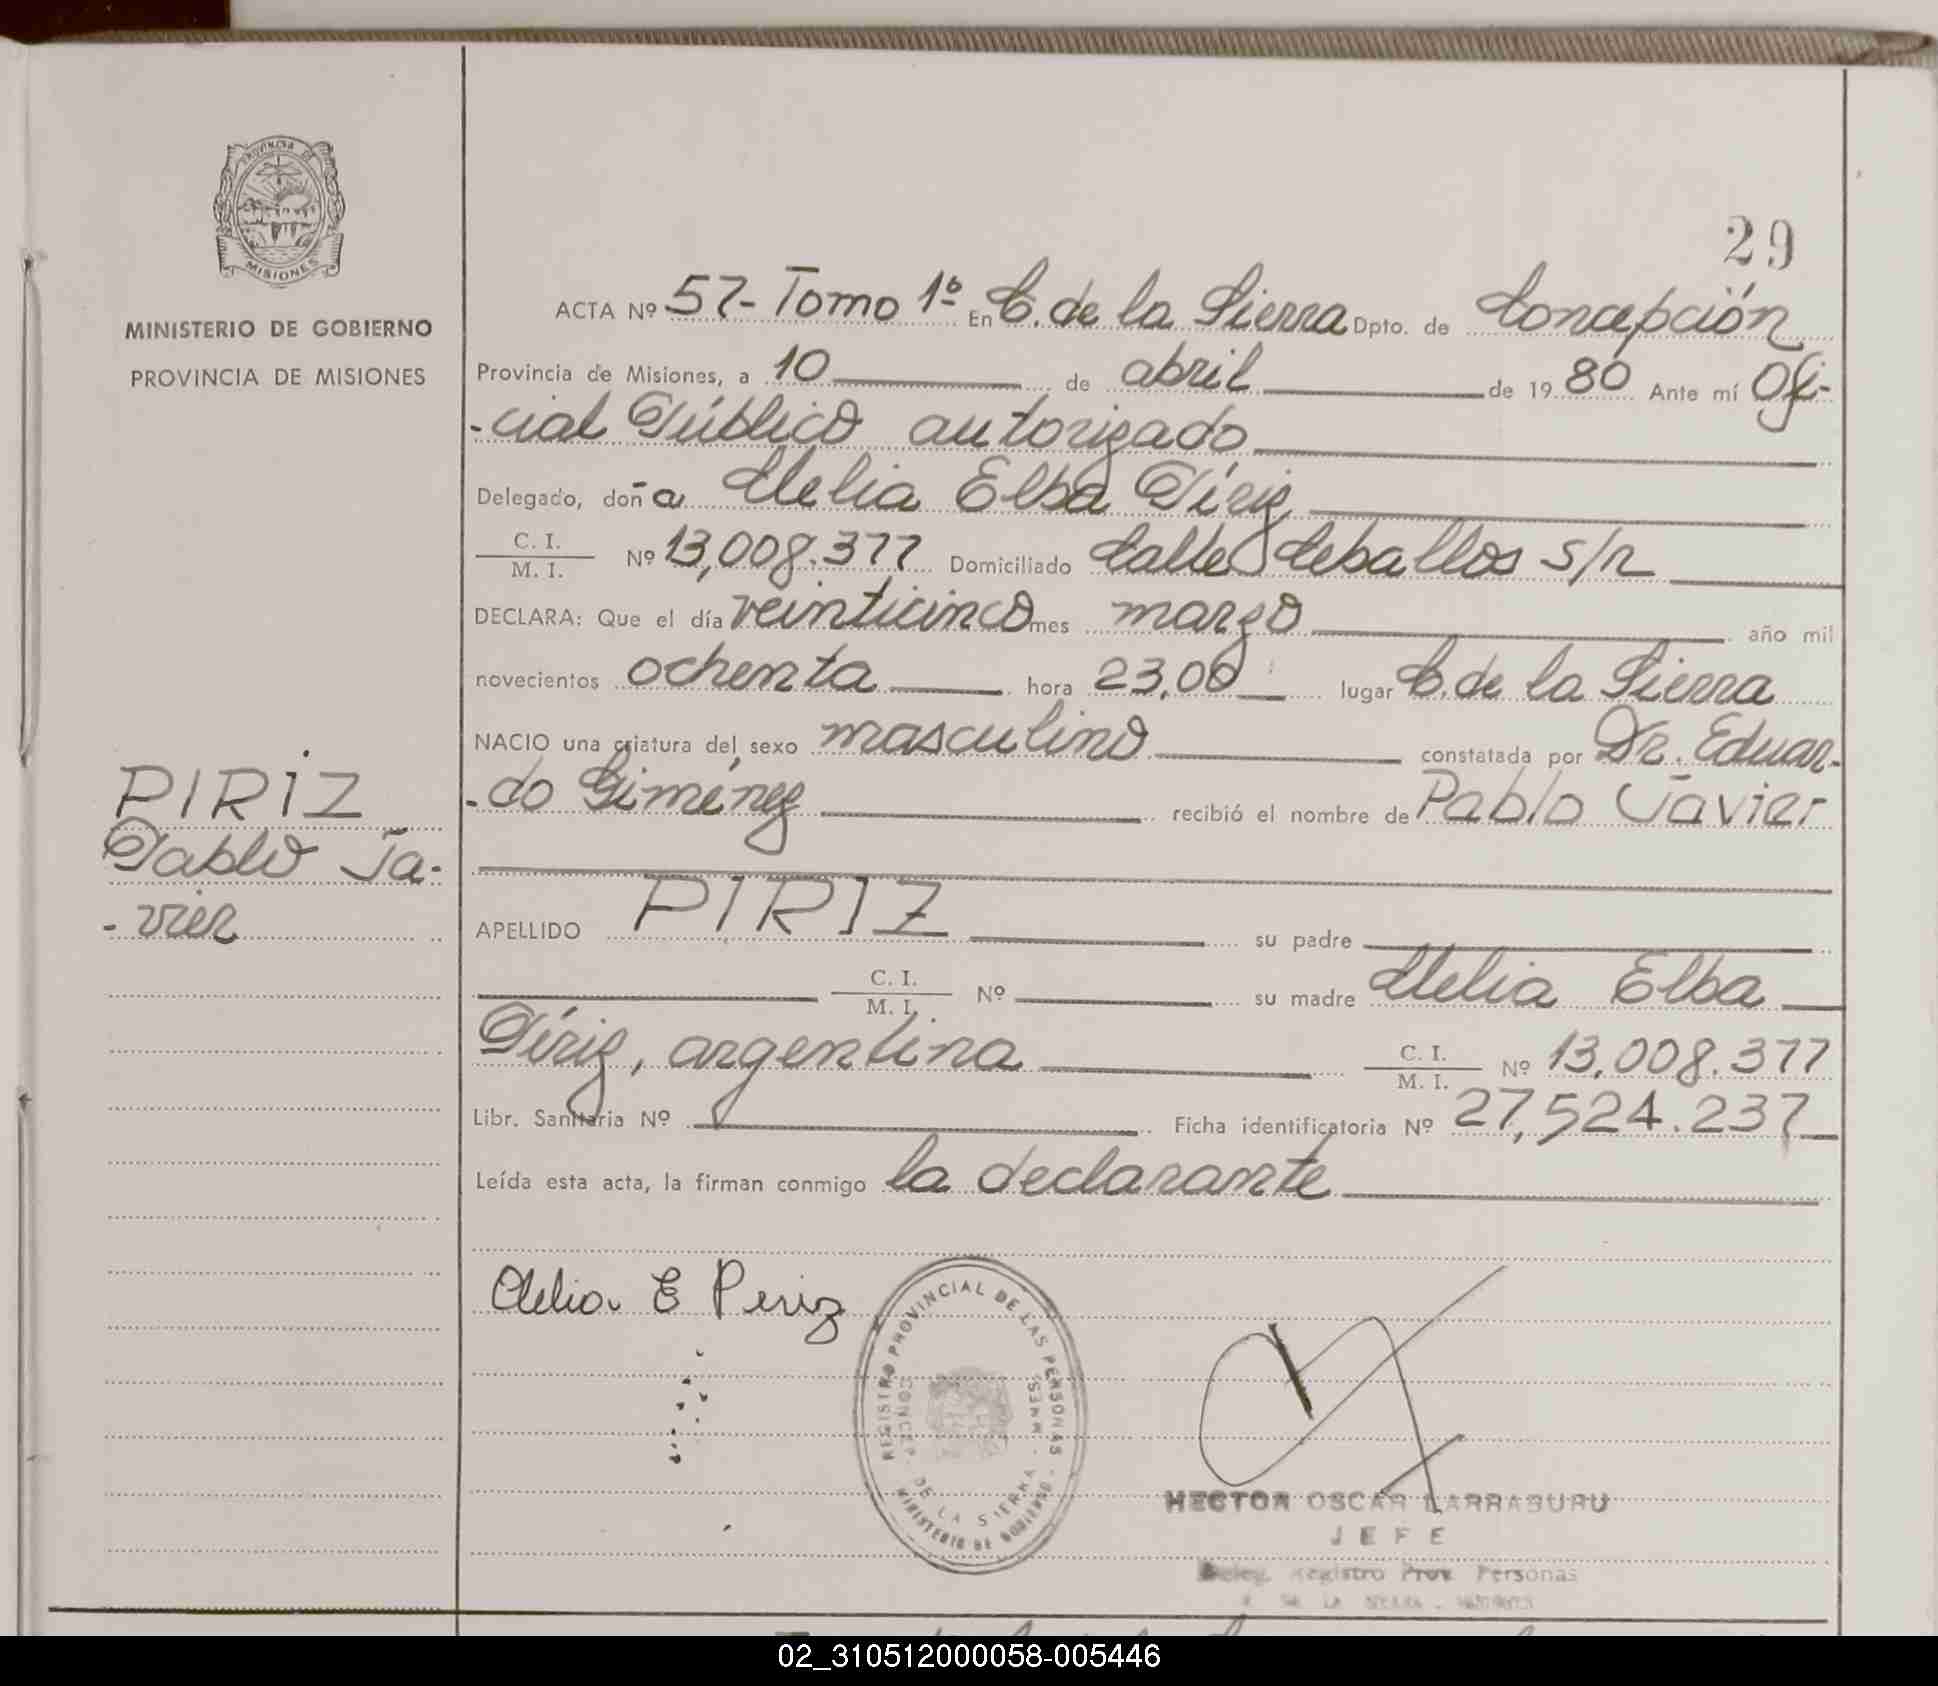 PROVINCIA DE
MISIONES
MINISTERIO DE GOBIERNO
PROVINCIA DE MISIONES
PIRIZ
Pablo Ja-
-vier
29
ACTA Nº 57- Tomo 1º En C. de la Sierra Dpto. de Concepción
Provincia de Misiones, a 10 de abril de 1980 Ante mí Ofi-
-cial Público autorizado
Delegado, doña Clelia Elba Píriz
C. I.
M. I. Nº 13,008.377 Domiciliado Calle Ceballos s/n
DECLARA: Que el día veinticinco mes marzo año mil
novecientos ochenta hora 23,00 lugar C. de la Sierra
NACIO una criatura del sexo masculino constatada por Dr. Eduar-
-do Giménez recibió el nombre de Pablo Javier
APELLIDO PIRIZ su padre
C. I.
M. I. Nº su madre Clelia Elba
Píriz, argentina C. I.
M. I. Nº 13,008.377
Libr. Sanitaria Nº Ficha identificatoria Nº 27,524.237
Leída esta acta, la firman conmigo la declarante
Clelia E Periz
REGISTRO PROVINCIAL DE LAS PERSONAS
CONCEP. DE LA SIERRA - MNES.
MINISTERIO DE GOBIERNO
HECTOR OSCAR LARRABURU
JEFE
Deleg. Registro Prov. Personas
DE LA SIERRA - MISIONES
02_310512000058-005446